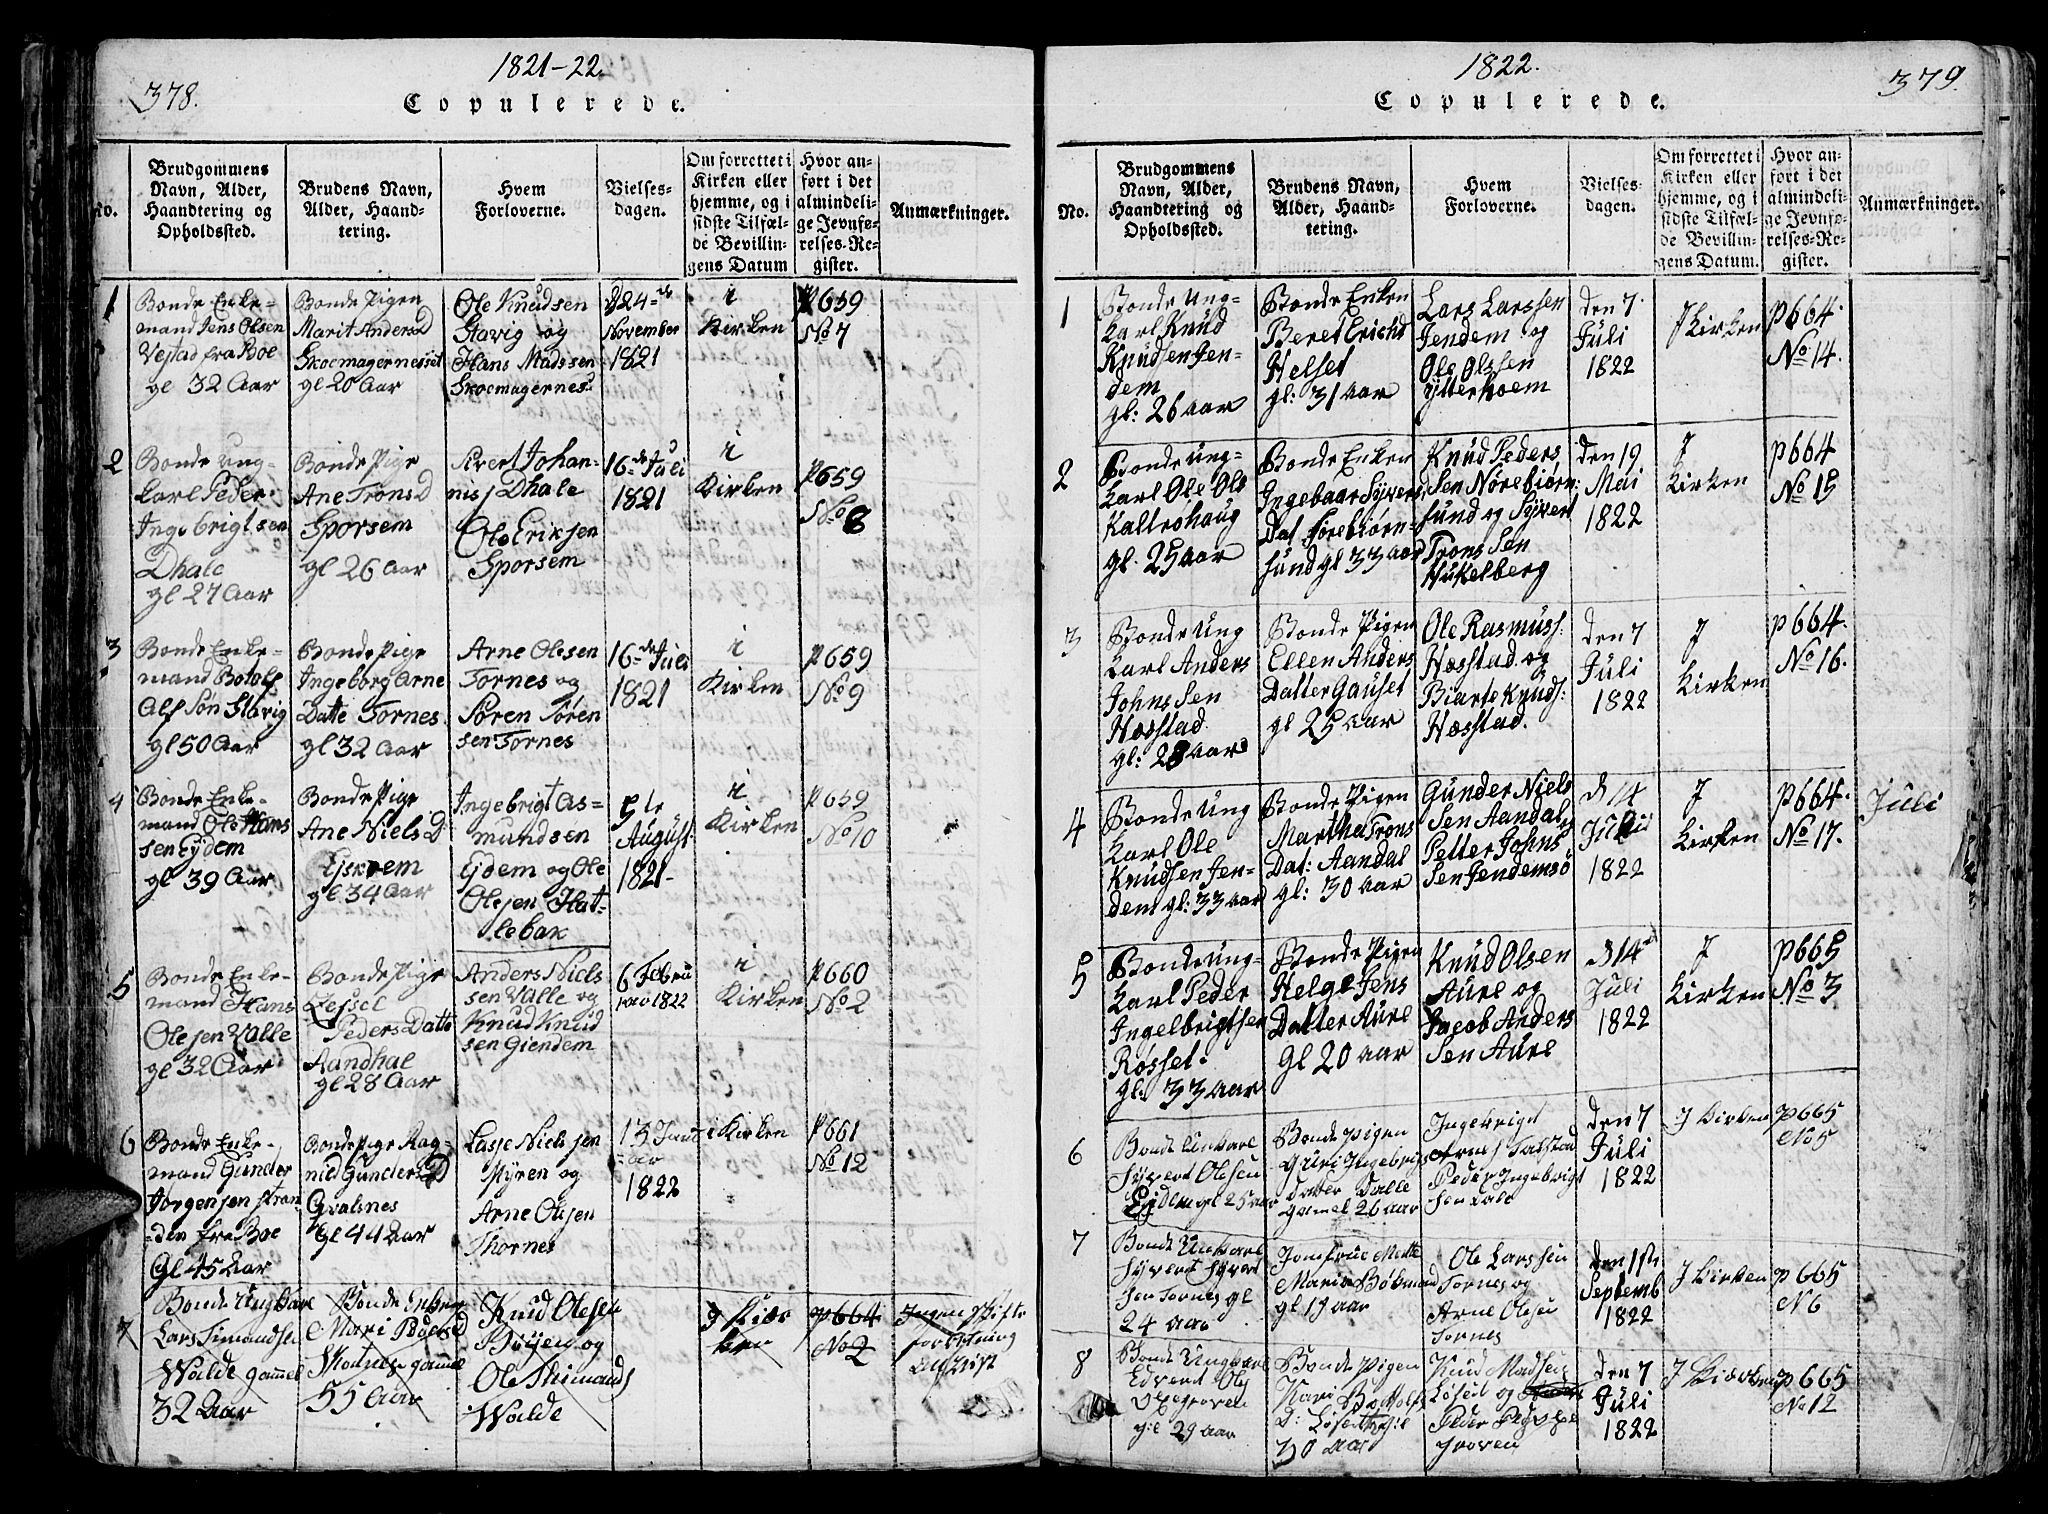 378.
1821-22.
Copulerede.
No.
Brudgommens
Navn, Alder,
Haandtering og
Opholdssted.
Brudens Navn,
Alder, Haand-
tering.
Hvem
Forloverne.
Vielses-
dagen.
Om forrettet i
Kirken eller
hjemme, og i
sidste Tilfæl-
de Bevillin-
gens Datum
Hvor an-
ført i det
almindeli-
ge Jevnfø-
relses-Re-
gister.
Anmærkninger.
1
Bonde Enke-
mand Jens Olsen
Vestad fra Boe
gl 32 Aar
Bonde Pigen
Marit Anders D
Skoemagernesset
gl 20 Aar
Ole Knudsen
Stavig og
Hans Madssen
Skoemagernes
d 24de
November
1821
i
Kirken
P 659
No 7
2
Bonde Ung-
karl Peder
Ingebrigtsen
Dhale
gl 27 Aar
Bonde Pige
Ane Trons D
Sporsem
gl 26 Aar
Sivert Johan-
nisj Dhale
Ole Eriksen
Sporsem
16de Juli
1821
i
Kirken
P 659
No 8
3
Bonde Enke-
mand Botolf
Alf Søn Stavig
gl 50 Aar
Bonde Pige
Ingeborg Arne
Datte Tornes
gl 32 Aar
Arne Olesen
Tornes og
Søren Søren
sen Tornes
16de Juli
1821
i
Kirken
P 659
No 9
4
Bonde Enke-
mand Ole Hans
sen Eydem
gl 39 Aar
Bonde Pige
Ane Niels D
gl 34 Aar
Ingebrigt As-
mundsen
Ejdem og Ole
Olesen Hat-
lebak
5te
August
1821-
i
Kirken
P 659
No 10
5
Bonde Enke-
mand Hans
Olesen Valle
gl 32 Aar
Bonde Pige
Peders Datte
Aandhal
gl 28 Aar
Anders Niels
sen Valle og
Knud Knud
sen Giendem
6 Febru
1822
i
Kirken
P 660
No 2
6
Bonde Enke-
mand Gunder
Jørgensen Stran-
den fra Boe
Gl 45 Aar
Bonde Pige Rag-
nild Gunders D
Gvalsnes
gl 44 Aar
Lasse Nielsjen
Styren og
Arne Olsjen
Thornes
13 Janu
ar
1822
i Kirken
P 661
No 12
7
Bonde Ungkarl
Lars Simondsen
Walde gammel
32 Aar
Bonde Enken
Mari
gammel
55 Aar
Knud Olesen
Bøyjen og
Ole Simonds
Walde
J Kiør
ken
p 664
No 2
Ingen Skifte
forretning
379.
1822.
Copulerede.
No.
Brudgommens
Navn, Alder,
Haandtering og
Opholdssted.
Brudens Navn,
Alder, Haand-
tering.
Hvem
Forloverne.
Vielses-
dagen.
Om forrettet i
Kirken eller
hjemme, og i
sidste Tilfæl-
de Bevillin-
gens Datum.
Hvor an-
ført i det
almindeli-
ge Jevnfø-
relses-Re-
gister.
Anmærkninger.
1
Bonde Ung-
karl Knud
Knudsen Jen-
dem
gl: 26 aar
Bonde Enken
Beret Erichd
Helset
gl: 31 aar
Lars Larssen
Jendem og
Ole Olssen
ytterhoem
den 7
Juli
1822
J Kirken
p 664.
No 14.
2
Bonde ung-
karl Ole Ols
Kaltrohaug
gl. 25 aar
Bonde Enken
Ingebaar Syvers
Dat Nørebiørn-
sund gl 33 aar
Knud Peders
Sen Nørebiørn:
sund og Syvert
Trons Sen
Hukelberg
den 19
Mai
1822
J
Kirken
p 664
No 15
3
Bonde Ung
karl Anders
Johns Sen
Hosstad
gl: 28 aar
Bonde Pigen
Ellen Anders
Datter Gauset
gl 25 aar
Ole Rasmuss:
Hosstad og
Biarte Knuds:
Hosstad.
den 7
Juli
1822
J
Kirken
p 664.
No 16.
4
Bonde Ung
karl Ole
Knudsen Jen-
dem gl: 33 aar
Bonde Pigen
Martha Trons
Dat: Aandal
gl: 30 aar
Gunder Niels
Sen Aandal og
Petter Johns
Sen Jendemsø
d 14
Juli
1822
J
Kirken
p 664.
No 17.
Juli
5
Bonde ung-
karl Peder
Ingelbrigtsen
Rosset
gl: 33 aar
Bonde Pigen
Helge Jens
Datter Aure
Gl 20 aar
Knud Olsen
Aure og
Jacob Anders
Sen Aure
d 14
Juli
1822
J
Kirken
p 665
No 3
6
Bonde Unkarl
Syvert Olesen
Eydem gl 25 aar
Bonde Pigen
Guri Ingebrigs
Datter Dalle
gamel 26 aar
Ingebrigt
Peder Ingebrigt
Sen Dale
den 7
Juli
1822
J Kirken
p 665
No 5
7
Bonde Unkarl
Syvert Syvert
Sen Tornes gl
24 aar
Jomfrue Mette
Maria Bøkmand
gl 19 aar
Ole Larssen
Tornes og
Arne Olesen
Tornes
den 1ste
Septemb
1822
J Kirken
p 665
No 6
8
Bonde Ungkarl
Edvert Oles
gl 29 aar
Bonde Pigen
Kari Bottolfs
D: Løset gl
30 aar
Knud Madsen
Løset og
Peder
den 7
Juli
1822
J Kiørken
p 665
No 12